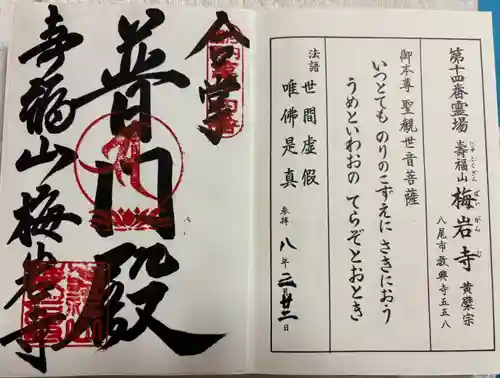 第十四番霊場 壽福山 梅岩寺 黄檗宗
じゅふくざん ばいがんじ
八尾市教興寺五五八
御本尊 聖觀世音菩薩
いつとても のりのこずえに さきにおう
うめといわおの てらぞとおとき
法語 世間虚假
唯佛是真
参拝 八年二月廿二日
普門殿
寿福山梅岩寺